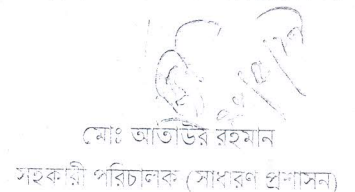 মোঃ আতাউর রহমান
সহকারী পরিচালক (সাধারণ প্রশাসন)